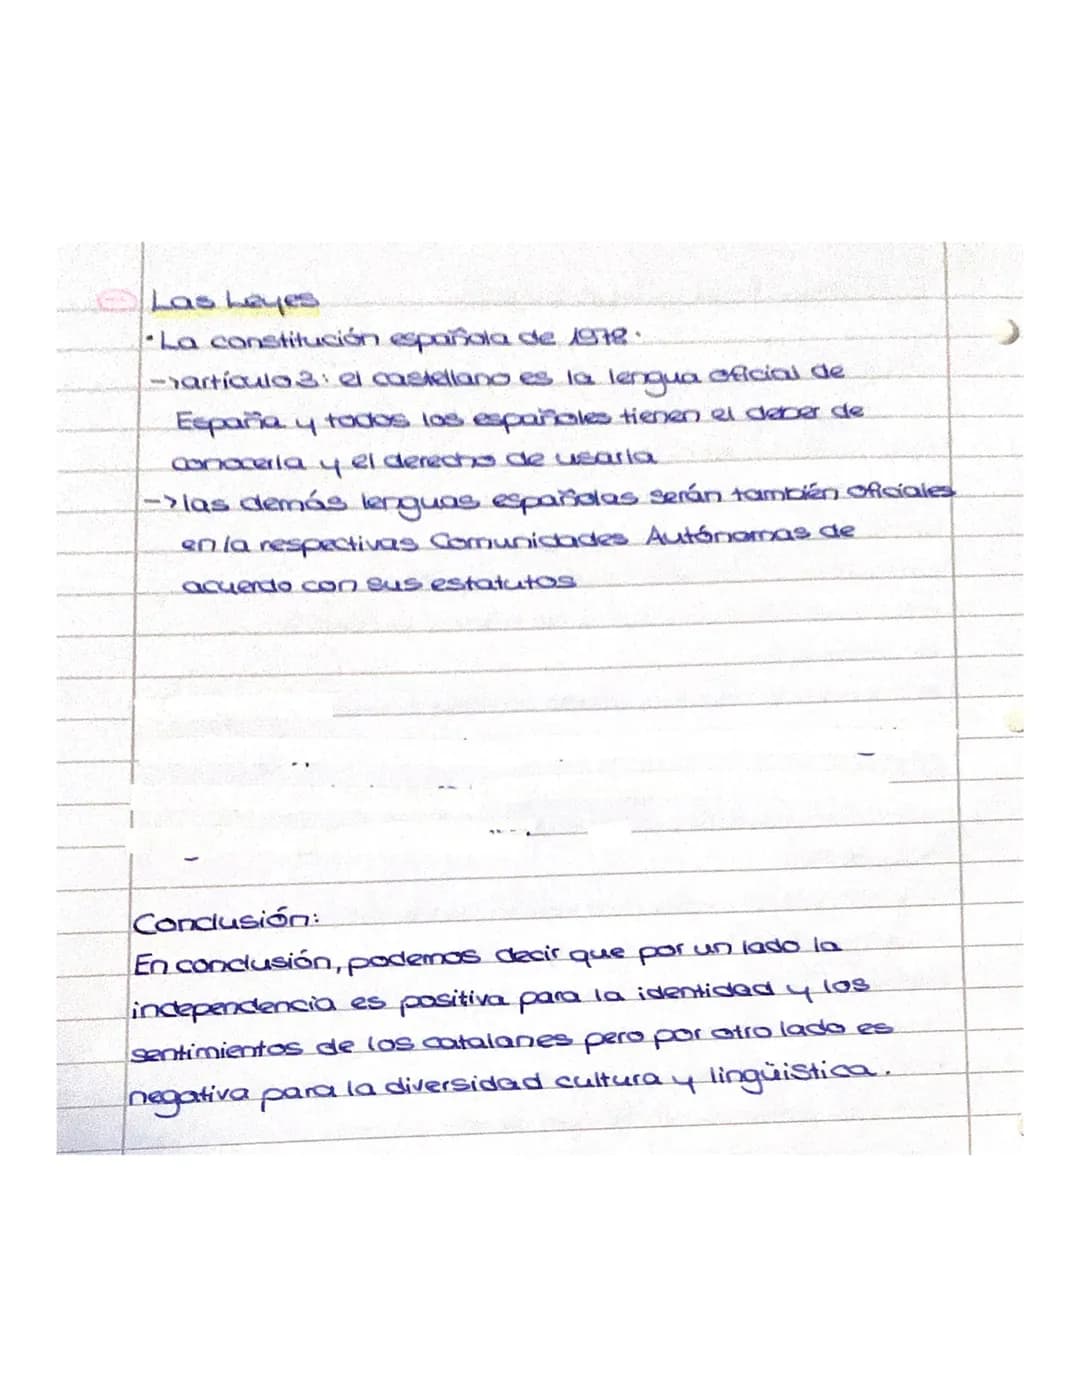 Las Leyes
·La constitución española de 1978·
->artículo 3: el castellano es la lengua oficial de
España y todos los españoles tienen el deber de
conocerla y el derecho de usarla
->las demás lenguas españolas serán también oficiales
en la respectivas Comunidades Autónomas de
acuerdo con sus estatutos
Conclusión:
En conclusión, podemos decir que por un lado la
independencia es positiva para la identidad y los
sentimientos de los catalanes pero por otro lado es
negativa para la diversidad cultura y lingüistica.